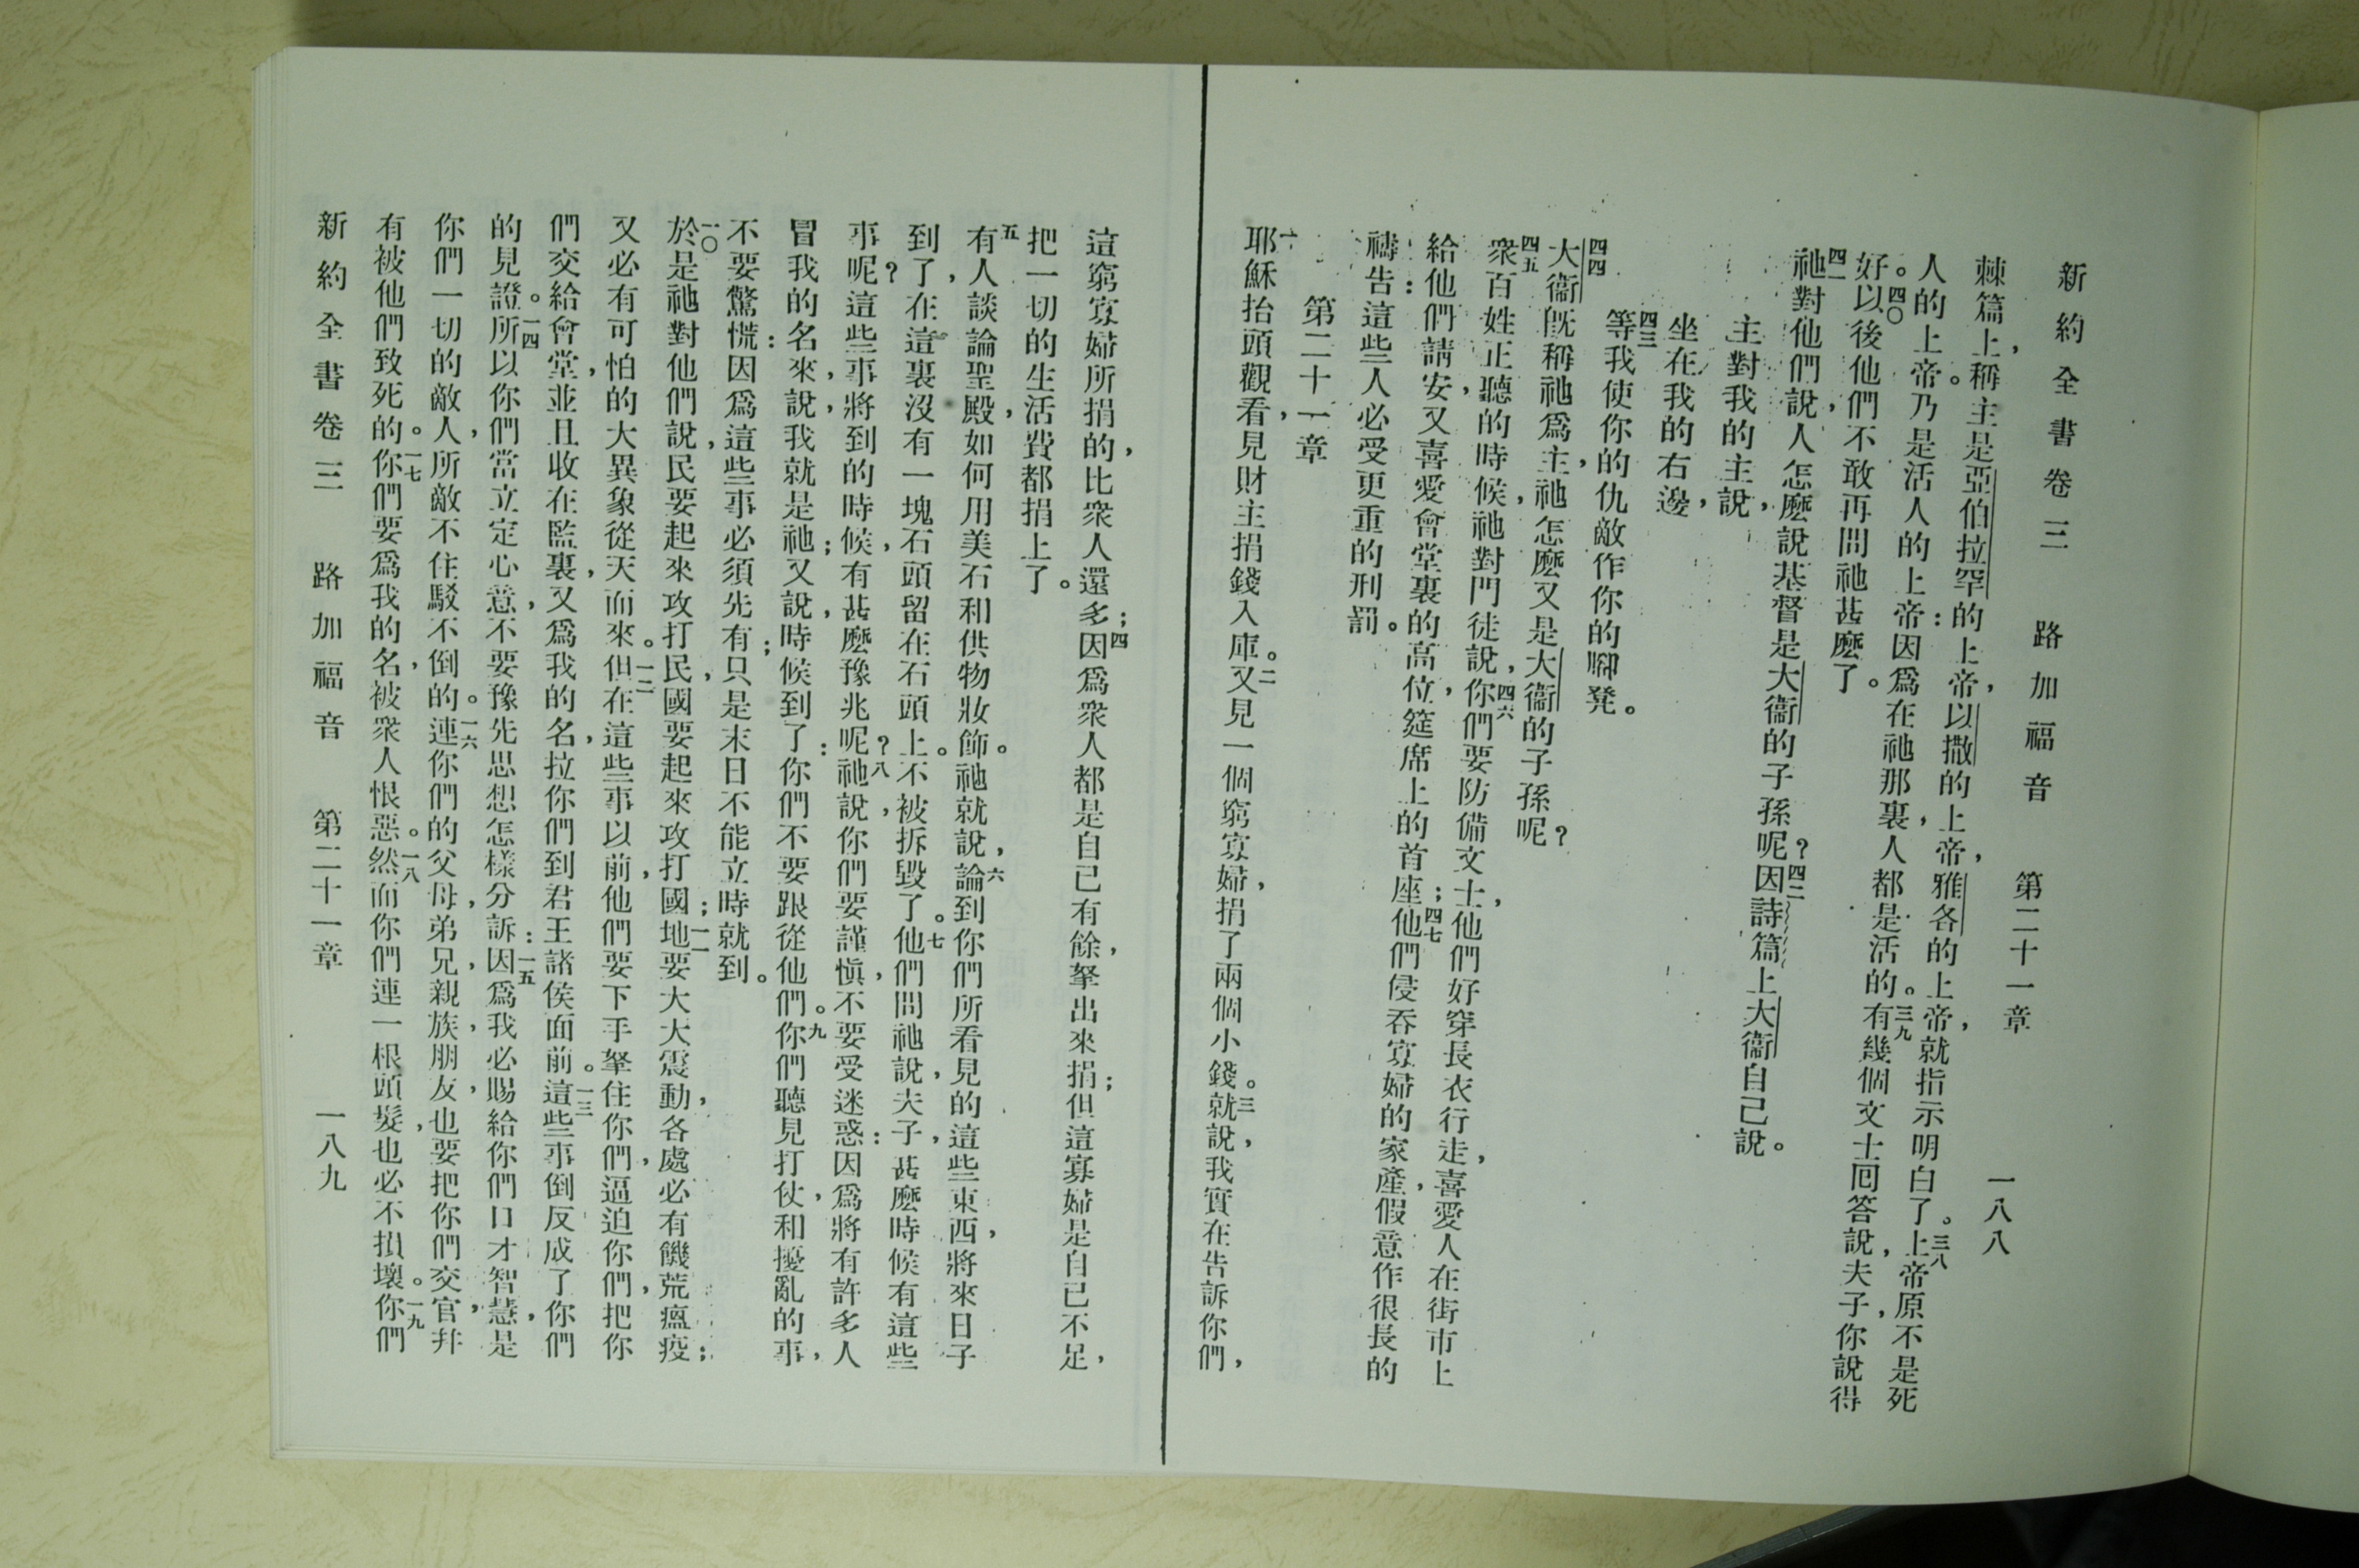 新約全書卷三 路加福音 第二十一章 一八八
棘篇上,稱主是亞伯拉罕的上帝:以撒的上帝,雅各的上帝,就指示明白了。三八上帝原不是死
人的上帝。乃是活人的上帝因爲在祂那裏,人都是活的。三九有幾個文士囘答說,夫子,你說得
好。四〇以後他們不敢再問祂甚麼了。
四一祂對他們說,人怎麼說基督是大衞的子孫呢?四二因詩篇上大衞自己說。
主對我的主說,
坐在我的右邊,
四三等我使你的仇敵作你的腳凳。
四四大衞旣稱祂爲主,祂怎麼又是大衞的子孫呢?
四五衆百姓正聽的時候,祂對門徒說,四六你們要防備文士,他們好穿長衣行走,喜愛人在街市上
給他們請安,又喜愛會堂裏的高位,筵席上的首座;四七他們侵吞寡婦的家產,假意作很長的
禱告:這些人必受更重的刑罰。
第二十一章
一耶穌抬頭觀看,見財主捐錢入庫。二又見一個窮寡婦,捐了兩個小錢。三就說,我實在告訴你們,
這窮寡婦所捐的,比衆人還多;四因爲衆人都是自己有餘,拏出來捐;但這寡婦是自己不足,
把一切的生活費都捐上了。
五有人談論聖殿,如何用美石和供物妝飾。祂就說,六論到你們所看見的這些東西,將來日子
到了,在這裏沒有一塊石頭留在石頭上。不被拆毀了。七他們問祂說,夫子,甚麼時候有這些
事呢?這些事將到的時候,有甚麼豫兆呢?八祂說,你們要謹愼,不要受迷惑:因爲將有許多人
冒我的名來,說,我就是祂;又說,時候到了:你們不要跟從他們。九你們聽見打仗,和擾亂的事,
不要驚慌:因爲這些事必須先有;只是末日不能立時就到。
一〇於是祂對他們說,民要起來攻打民,國要起來攻打國;一一地要大大震動,各處必有饑荒瘟疫;
又必有可怕的大異象從天而來。一二但在這些事以前,他們要下手拏住你們,逼迫你們,把你
們交給會堂,並且收在監裏,又爲我的名,拉你們到君王諸侯面前。一三這些事倒反成了你們
的見證。一四所以你們當立定心意,不要豫先思想怎樣分訴:一五因爲我必賜給你們口才智慧,是
你們一切的敵人,所敵不住駁不倒的。一六連你們的父母,弟兄,親族,朋友,也要把你們交官,幷
有被他們致死的。一七你們要爲我的名,被衆人恨惡。一八然而你們連一根頭髮,也必不損壞。一九你們
新約全書卷三 路加福音 第二十一章 一八九